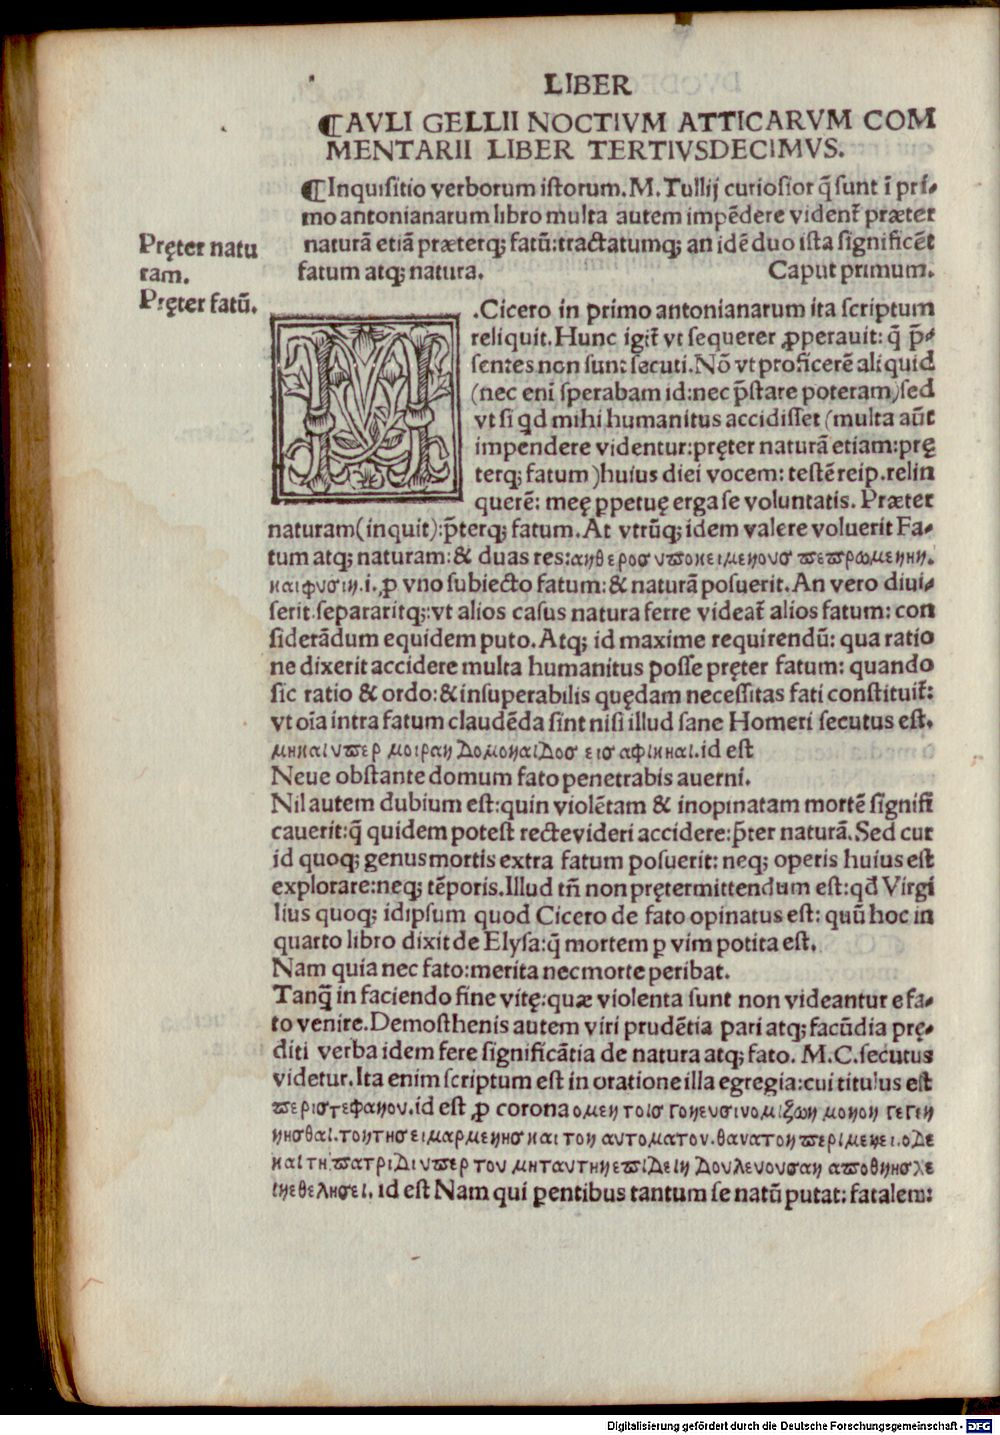 LIBER
¶AVLI GELLII NOCTIVM ATTICARVM COM
MENTARII LIBER TERTIVSDECIMVS.
¶Inquisitio verborum istorum. M. Tullij curiosior q̃ sunt ĩ pri-
mo antonianarum libro multa autem impẽdere videnť præter
naturã etiã præterq; fatũ: tractatumq; an idẽ duo ista significẽt
fatum atq; natura. Caput primum.
Pręter natu
ram.
Pręter fatũ.
M
.Cicero in primo antonianarum ita scriptum
reliquit. Hunc igiť vt sequerer ꝓperauit: q̃ p̃-
sentes non sunt secuti. Nõ vt proficerẽ aliquid
(nec eni sperabam id: nec p̃stare poteram) sed
vt si qd mihi humanitus accidisset (multa aũt
impendere videntur: pręter naturã etiam: prę
terq; fatum) huius diei vocem: testẽ reip. relin
querẽ: meę ꝑpetuę erga se voluntatis. Præter
naturam (inquit): p̃terq; fatum. At vtrũq; idem valere voluerit Fa-
tum atq; naturam: & duas res: ανθεροσ υποκειμενουσ πεπρωμενην.
και φυσιν. i. ꝓ vno subiecto fatum: & naturã posuerit. An vero diui-
serit separaritq;: vt alios casus natura ferre videať alios fatum: con
siderãdum equidem puto. Atq; id maxime requirendũ: qua ratio
ne dixerit accidere multa humanitus posse pręter fatum: quando
sic ratio & ordo: & insuperabilis quędam necessitas fati constituiť:
vt oĩa intra fatum claudẽda sint nisi illud sane Homeri secutus est.
μηκαι υπερ μοιραν Δομοναιδοσ εισ αφικηαι. id est
Neue obstante domum fato penetrabis auerni.
Nil autem dubium est: quin violẽtam & inopinatam mortẽ signifi
cauerit: q̃ quidem potest recte videri accidere: p̃ter naturã. Sed cur
id quoq; genus mortis extra fatum posuerit: neq; operis huius est
explorare: neq; tẽporis. Illud tñ non prętermittendum est: qđ Virgi
lius quoq; idipsum quod Cicero de fato opinatus est: quũ hoc in
quarto libro dixit de Elysa: q̃ mortem ꝑ vim potita est.
Nam quia nec fato: merita nec morte peribat.
Tanq̃ in faciendo fine vitę: quæ violenta sunt non videantur e fa-
to venire. Demosthenis autem viri prudẽtia pari atq; facũdia prę-
diti verba idem fere significãtia de natura atq; fato. M. C. secutus
videtur. Ita enim scriptum est in oratione illa egregia: cui titulus est
περιστεφανου. id est ꝓ corona ομεν τοισ γονευσι νομιζων μονον γεγεν
νησθαι. τοντησ ειμαρμενησ και τον αυτοματον. θανατον περιμενει. οΔε
και τη πατριΔι υπερ του μηταυτηνεπιΔειν Δουλευουσαν αποθνησχε
ινεθελησει. id est Nam qui ꝑentibus tantum se natũ putat: fatalem: